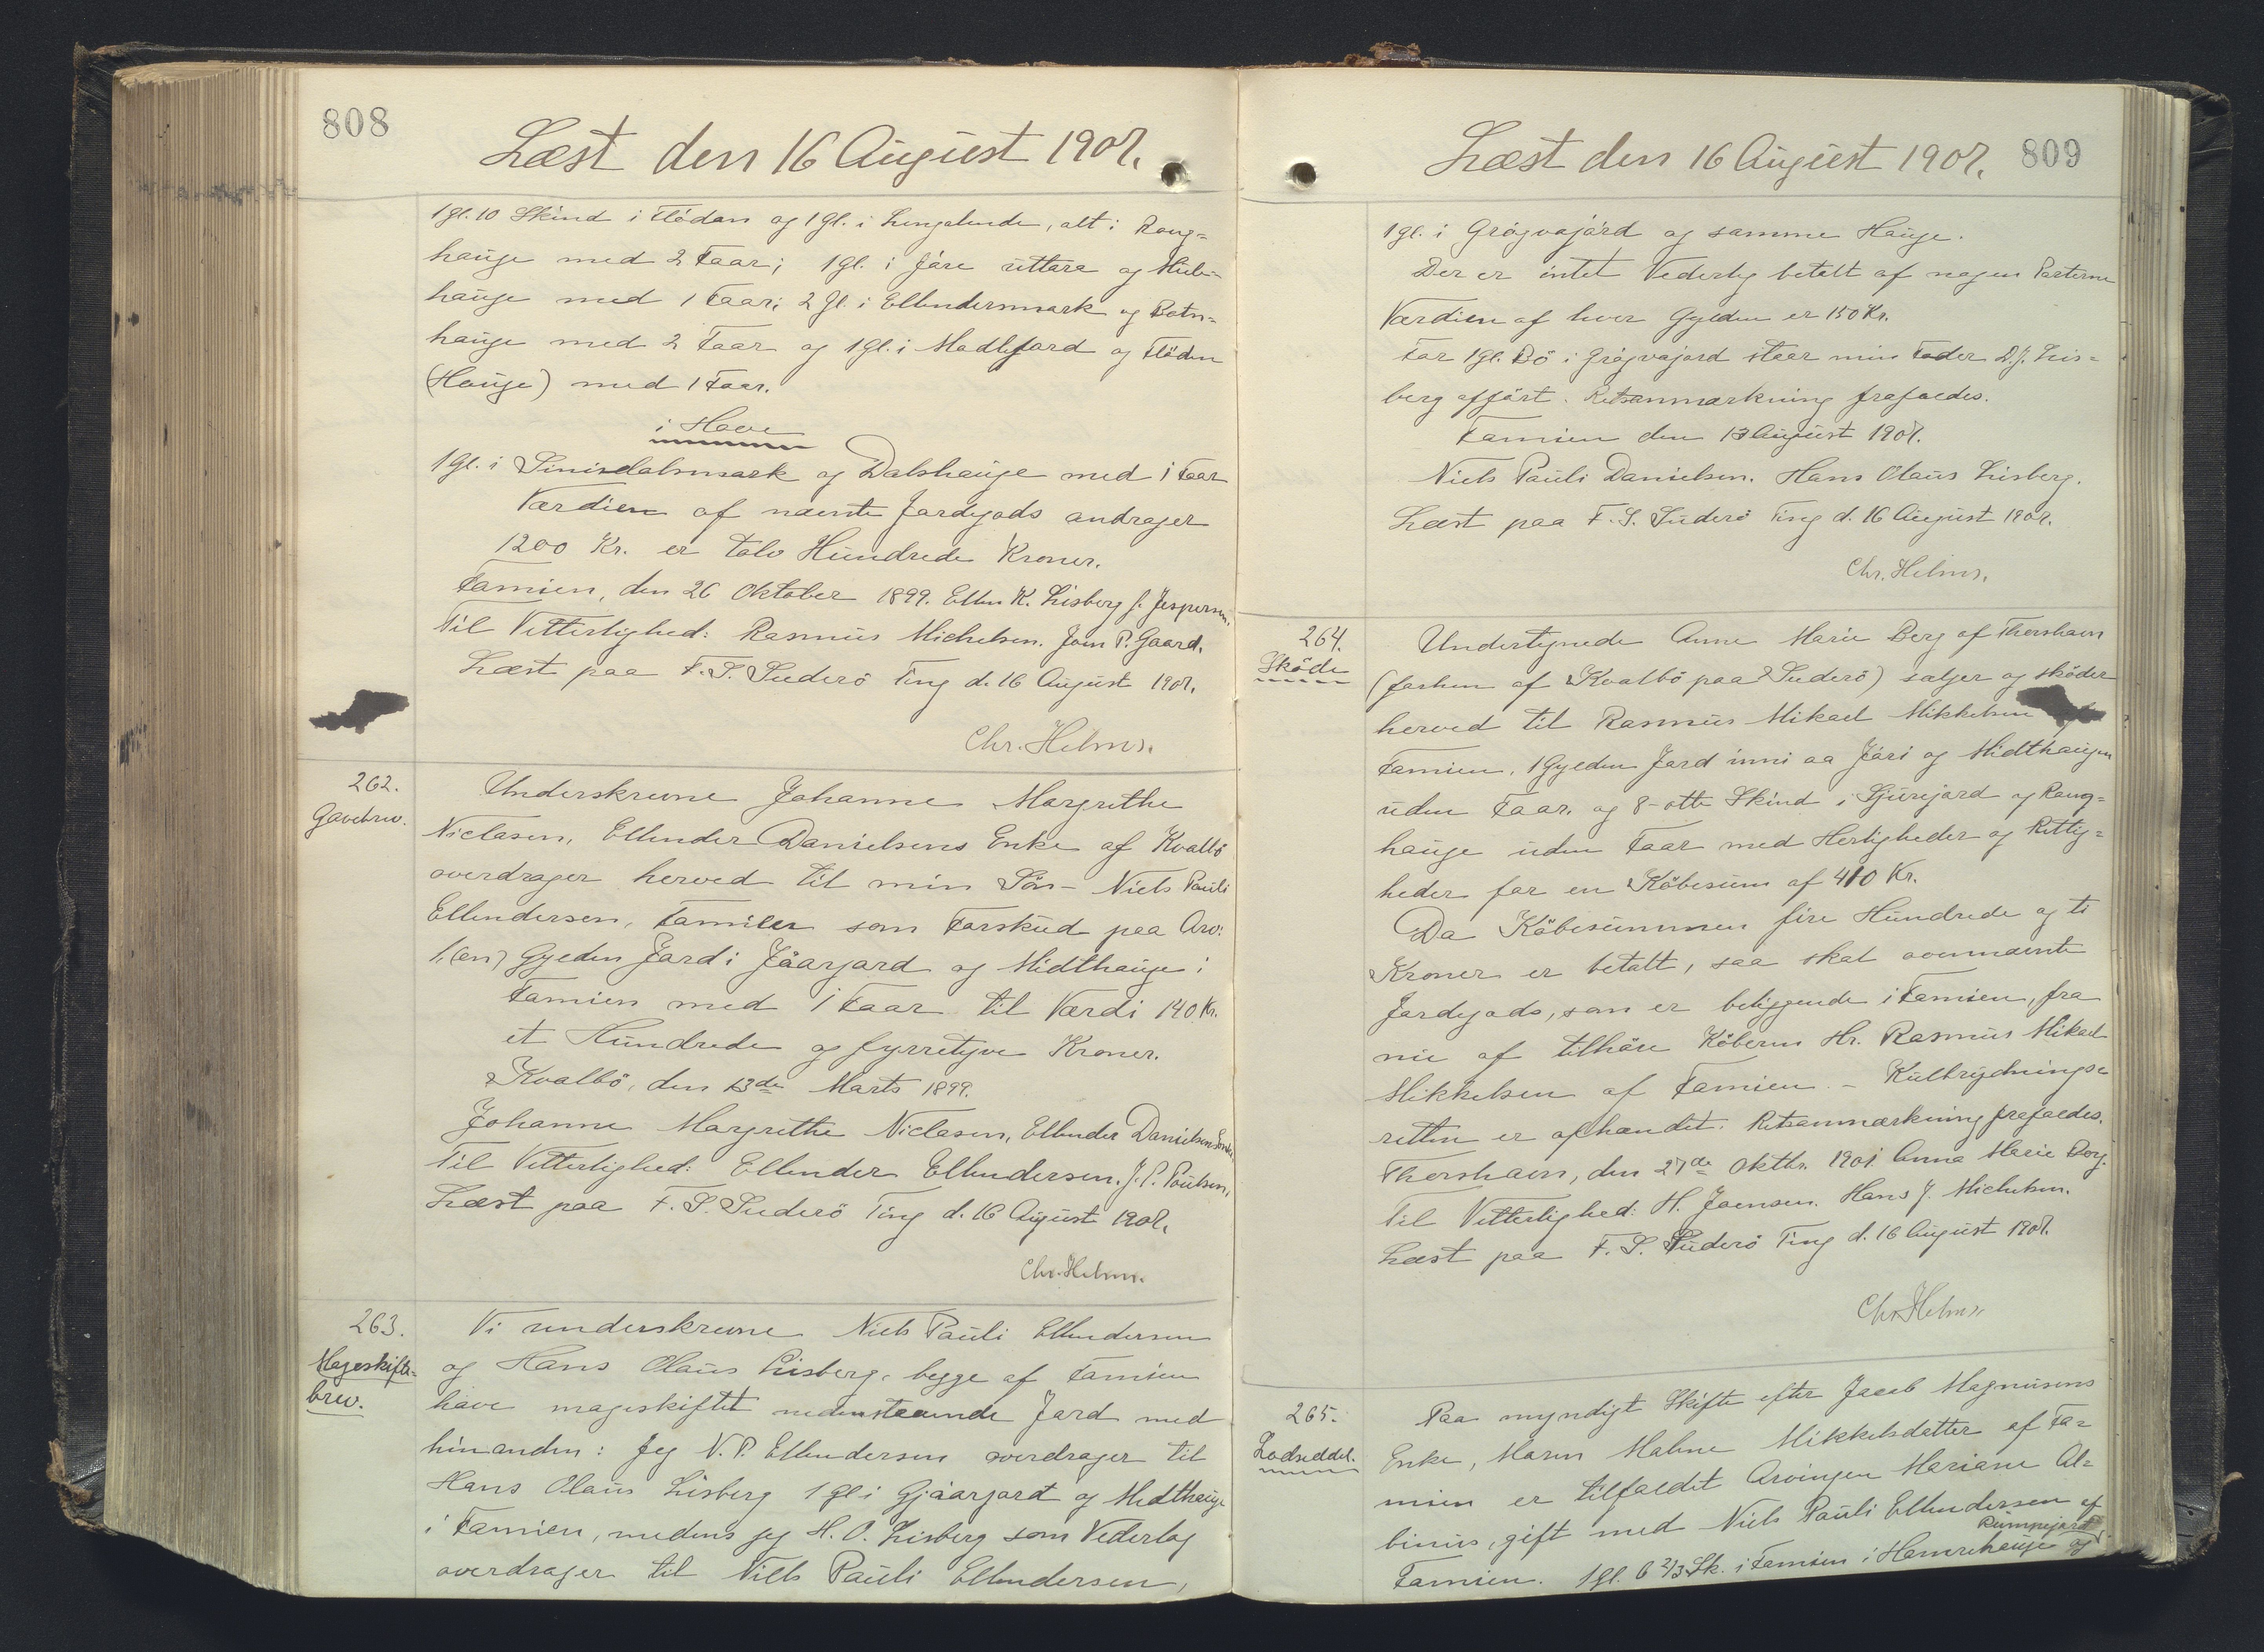 808
Læst den 16 August 1901.
1 gl. 10 Skind i Flödan og 1 gl. i Lengalende, alt i Roug=
hauge med 2 Faar; 1 gl. i Járe uttara og Midt-
hauge med 1 Faar; 2 Gl. i Ellindermark og Botn=
hauge med 2 Faar og 1 gl. i Madlejard og Flöden
(Hauge) med 1 Faar.
i Hove
1 Gl. i Sinisdalsmark og Dalshauge med 1 Faar
Værdien af nævnte Jordegods andrager
1200 Kr. er tolv Hundrede Kroner.
Famien, den 26 Oktober 1899. Ellen K. Lisberg f. Jespersen.
Til Vitterlighed: Rasmus Michelsen. Joen P. Gaard.
Læst paa F. S. Suderö Ting d. 16 August 1901.
Chr. Helms.
262.
Gavebrev.
Underskrevne Johanne Margrethe
Niclasen, Ellender Danielsens Enke af Kvalbö
overdrager herved til min Sön - Niels Pauli
Ellendersen, Famien som Forskud paa Arv:
1, (en) Gylden Jord i Jåarjard og Midthauge i
Famien med 1 Faar til Værdi 140 Kr.
et Hundrede og fyrretyve Kroner.
Kvalbö, den 13de Marts 1899.
Johanne Margrethe Niclasen, Ellender Danielsens Enke.
Til Vitterlighed: Ellender Ellendersen. J. P. Poulsen.
Læst paa F. S. Suderö Ting d. 16 August 1901.
Chr. Helms.
263.
Mageskifte=
brev.
Vi underskrevne Niels Pauli Ellendersen
og Hans Olaus Lisberg, begge af Famien
have mageskiftet nedenstaaende Jord med
hinanden: Jeg N. P. Ellendersen overdrager til
Hans Olaus Lisberg 1 gl i Gjáarjard og Midthauge
i Famien, medens jeg H. O. Lisberg som Vederlag
overdrager til Niels Pauli Ellendersen,
Læst den 16 August 1901.
809
1 gl. i Grógvajárd og samme Hauge.
Der er intet Vederlag betalt af nogen Parterne
Værdien af hver Gylden er 150 Kr.
For 1 gl. Bö i Grógvajord staar min Fader D. J. Lis=
berg opfört. Retsanmærkning frafaldes.
Famien den 13 August 1901.
Niels Pauli Danielsen. Hans Olaus Lisberg.
Læst paa F. S. Suderö Ting d. 16 August 1901.
Chr. Helms.
264.
Sköde
Undertegnede Anne Marie Berg af Thorshavn
(forhen af Kvalbö paa Suderö) sælger og sköder
herved til Rasmus Mikael Mikkelsen
Famien, 1 Gylden Jord inni aa Jári og Midthaugen
uden Faar, og 8 - otte Skind i Sjúrejard og Raug=
hauge uden Faar med Herligheder og Rettig=
heder for en Köbesum af 410 Kr.
Da Köbesummen fire Hundrede og ti
Kroner er betalt, saa skal ovennævnte
Jordegods, som er beliggende i Famien, fra
nu af tilhöre Köberen Hr. Rasmus Mikael
Mikkelsen af Famien. - Kulbrydnings=
retten er afhændet. Retsanmærkning frafaldes.
Thorshavn, den 27de Oktbr. 1901 Anna Marie Berg.
Til Vitterlighed: H. Joensen. Hans J. Michelsen.
Læst paa F. S. Suderö Ting d. 16 August 1901.
Chr. Helms
265.
Lodseddel.
Paa myndigt Skifte efter Jacob Magnusens
Enke, Maren Malene Mikkelsdatter af Fa=
mien er tilfaldet Arvingen Mariane Al=
binus, gift med Niels Pauli Ellendersen af
Rumpejard
Famien. 1 gl. 6 2/3 Sk. i Famien i Hamrehauge og